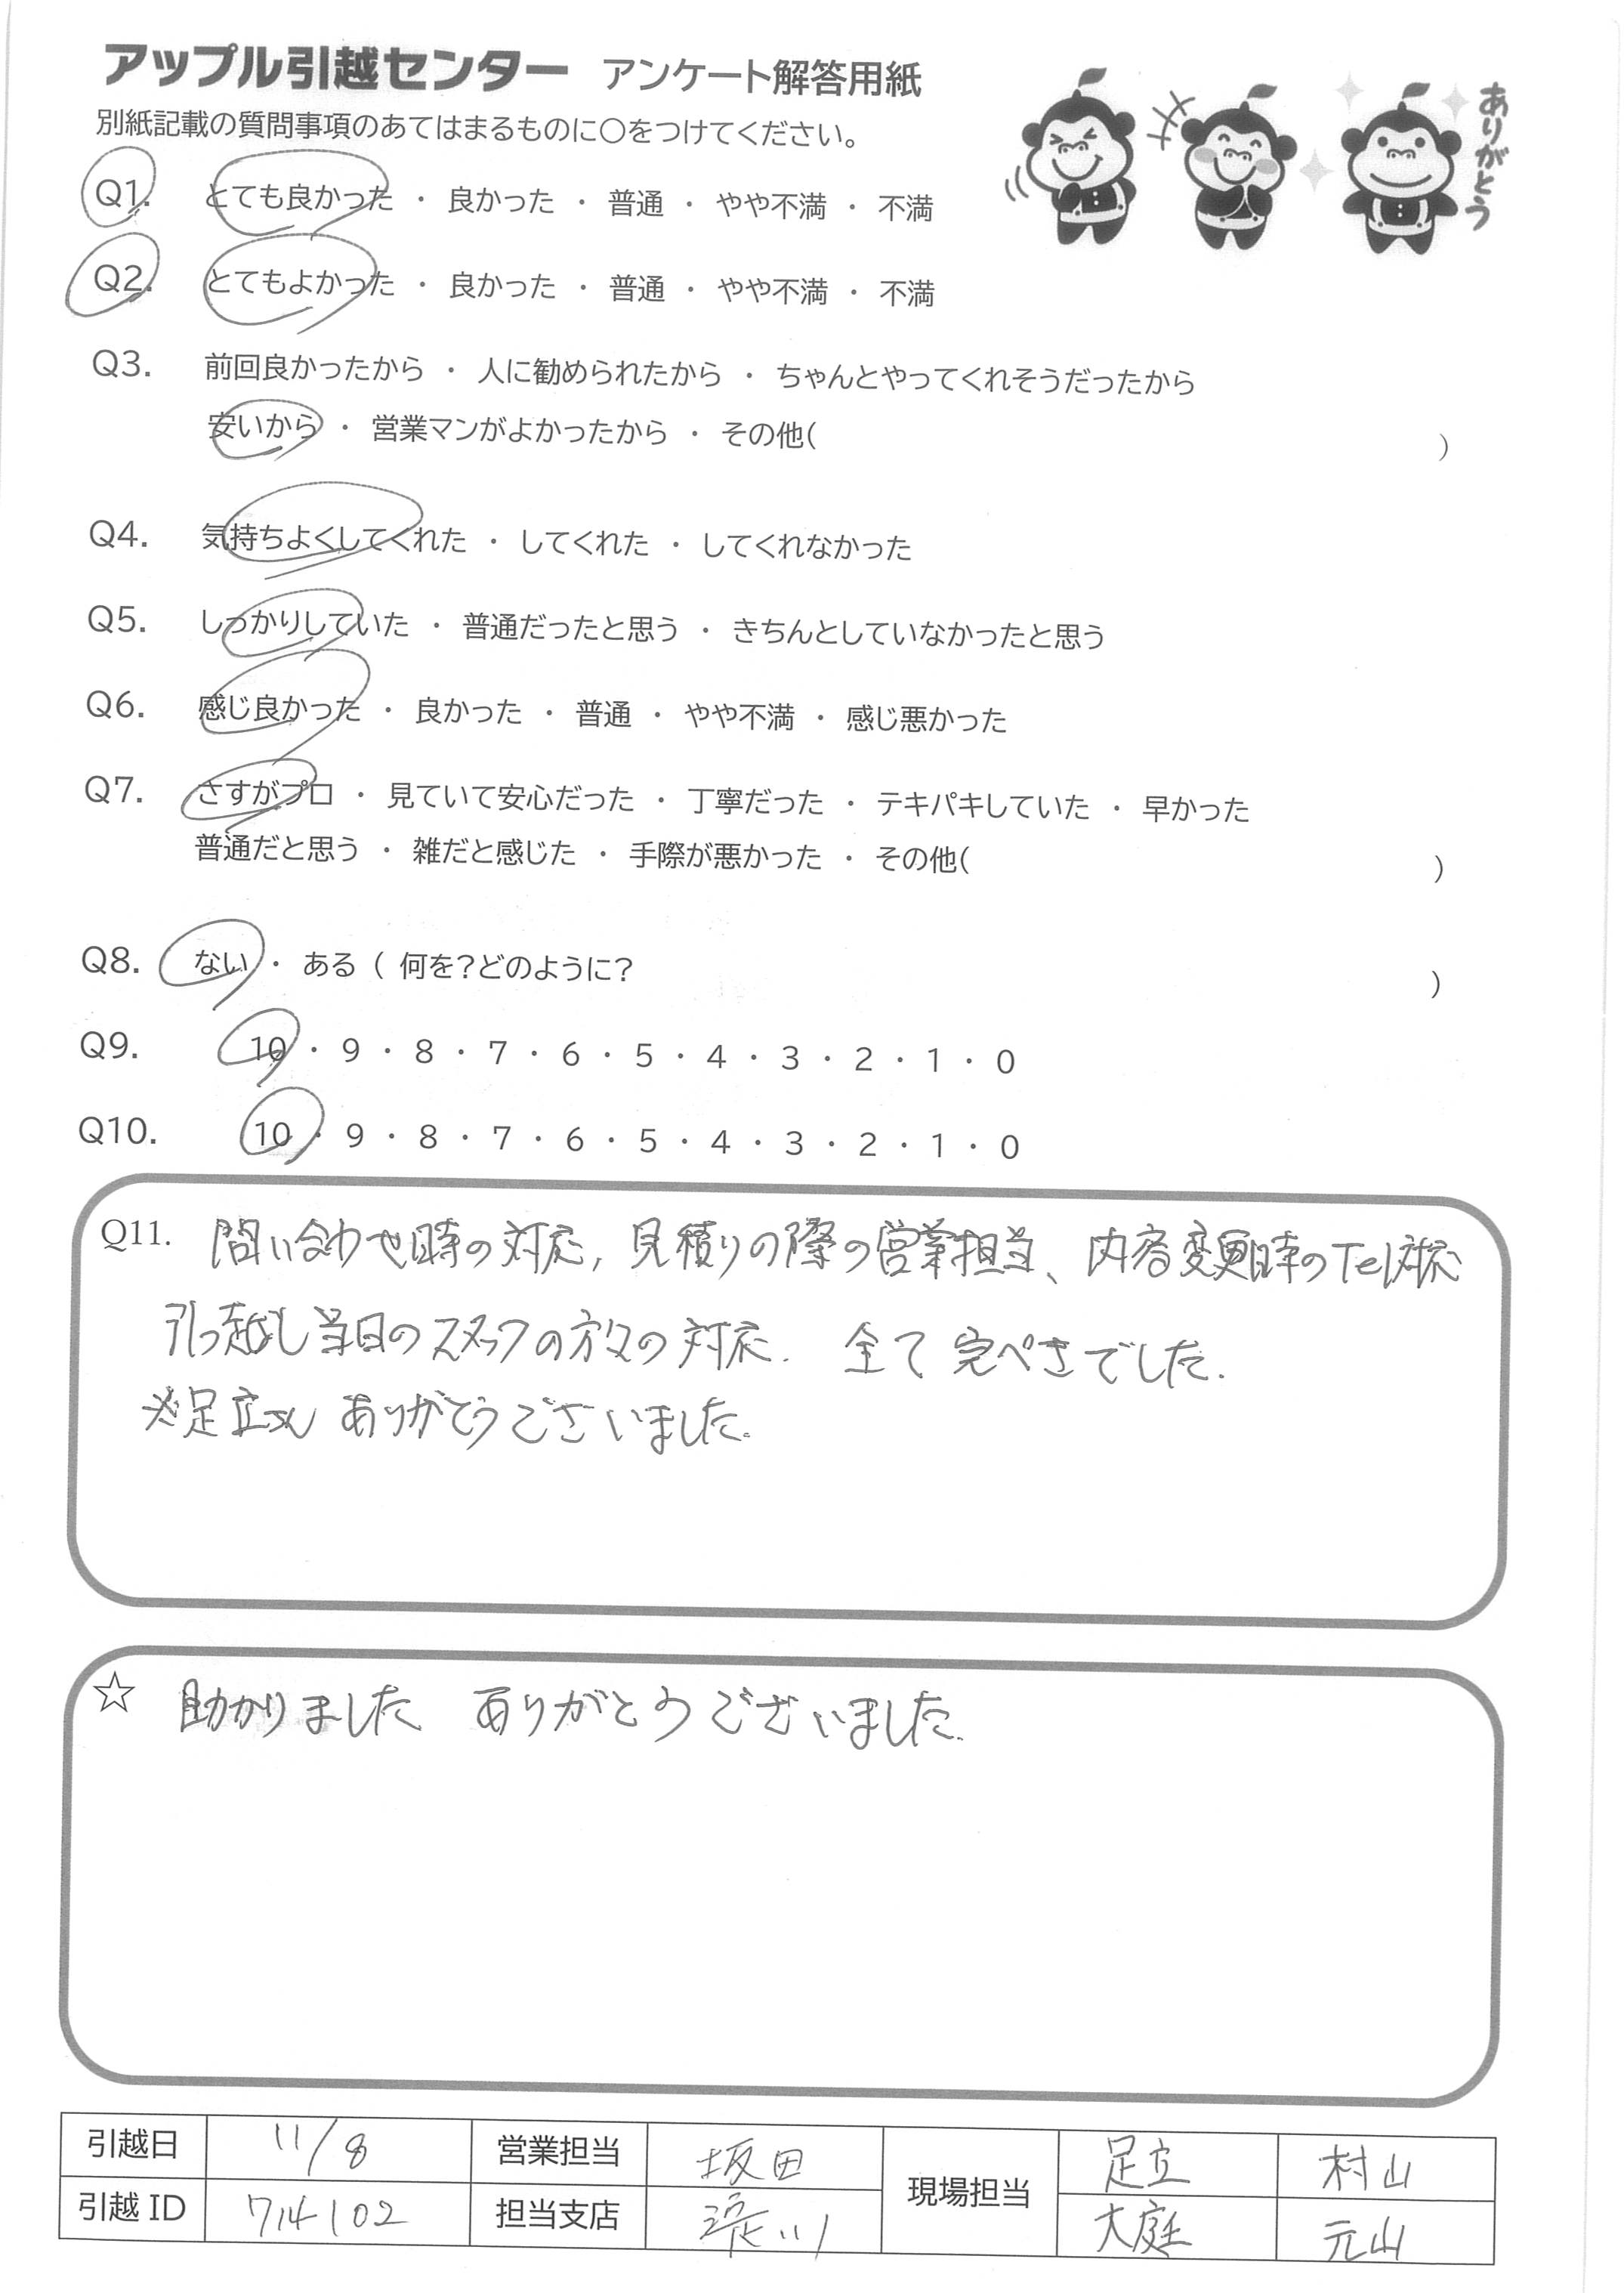 アップル引越センター アンケート解答用紙
ありがとう
別紙記載の質問事項のあてはまるものに○をつけてください。
Q1. とても良かった ・ 良かった ・ 普通 ・ やや不満 ・ 不満
Q2. とてもよかった ・ 良かった ・ 普通 ・ やや不満 ・ 不満
Q3. 前回良かったから ・ 人に勧められたから ・ ちゃんとやってくれそうだったから
安いから ・ 営業マンがよかったから ・ その他( )
Q4. 気持ちよくしてくれた ・ してくれた ・ してくれなかった
Q5. しっかりしていた ・ 普通だったと思う ・ きちんとしていなかったと思う
Q6. 感じ良かった ・ 良かった ・ 普通 ・ やや不満 ・ 感じ悪かった
Q7. さすがプロ ・ 見ていて安心だった ・ 丁寧だった ・ テキパキしていた ・ 早かった
普通だと思う ・ 雑だと感じた ・ 手際が悪かった ・ その他( )
Q8. ない ・ ある ( 何を?どのように? )
Q9. 10 ・ 9 ・ 8 ・ 7 ・ 6 ・ 5 ・ 4 ・ 3 ・ 2 ・ 1 ・ 0
Q10. 10 ・ 9 ・ 8 ・ 7 ・ 6 ・ 5 ・ 4 ・ 3 ・ 2 ・ 1 ・ 0
Q11. 問い合わせ時の対応, 見積りの際の営業担当、内容変更時のTel対応
引っ越し当日のスタッフの方々の対応. 全て完ぺきでした.
※足立さん ありがとうございました.
☆ 助かりました ありがとうございました.
引越日 11/8 営業担当 坂田 現場担当 足立 村山
引越ID 714102 担当支店 淀川 大庭 元山